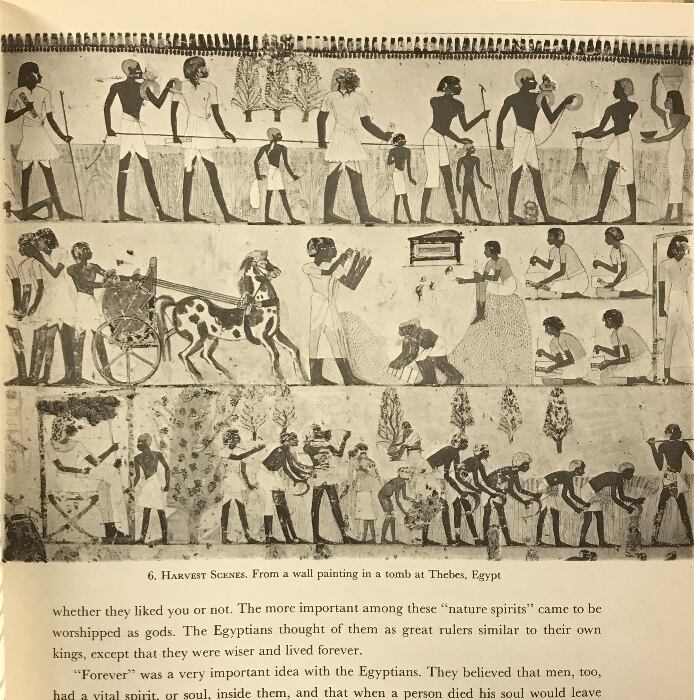 6. HARVEST SCENES. From a wall painting in a tomb at Thebes, Egypt
whether they liked you or not. The more important among these "nature spirits" came to be
worshipped as gods. The Egyptians thought of them as great rulers similar to their own
kings, except that they were wiser and lived forever.
"Forever" was a very important idea with the Egyptians. They believed that men, too,
had a vital spirit, or soul, inside them, and that when a person died his soul would leave